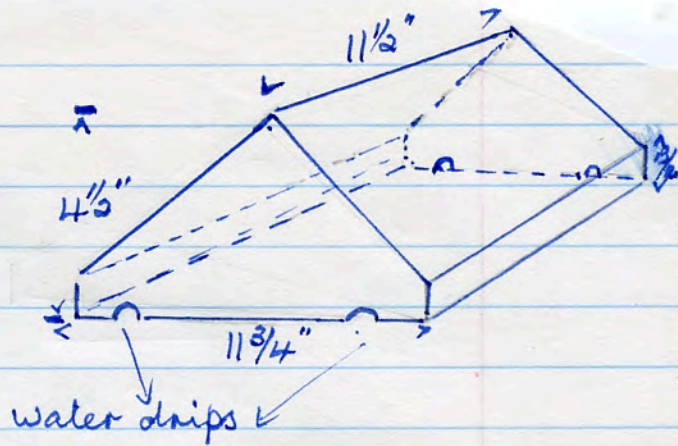 11 1/2"
4 1/2"
11 3/4"
water drips